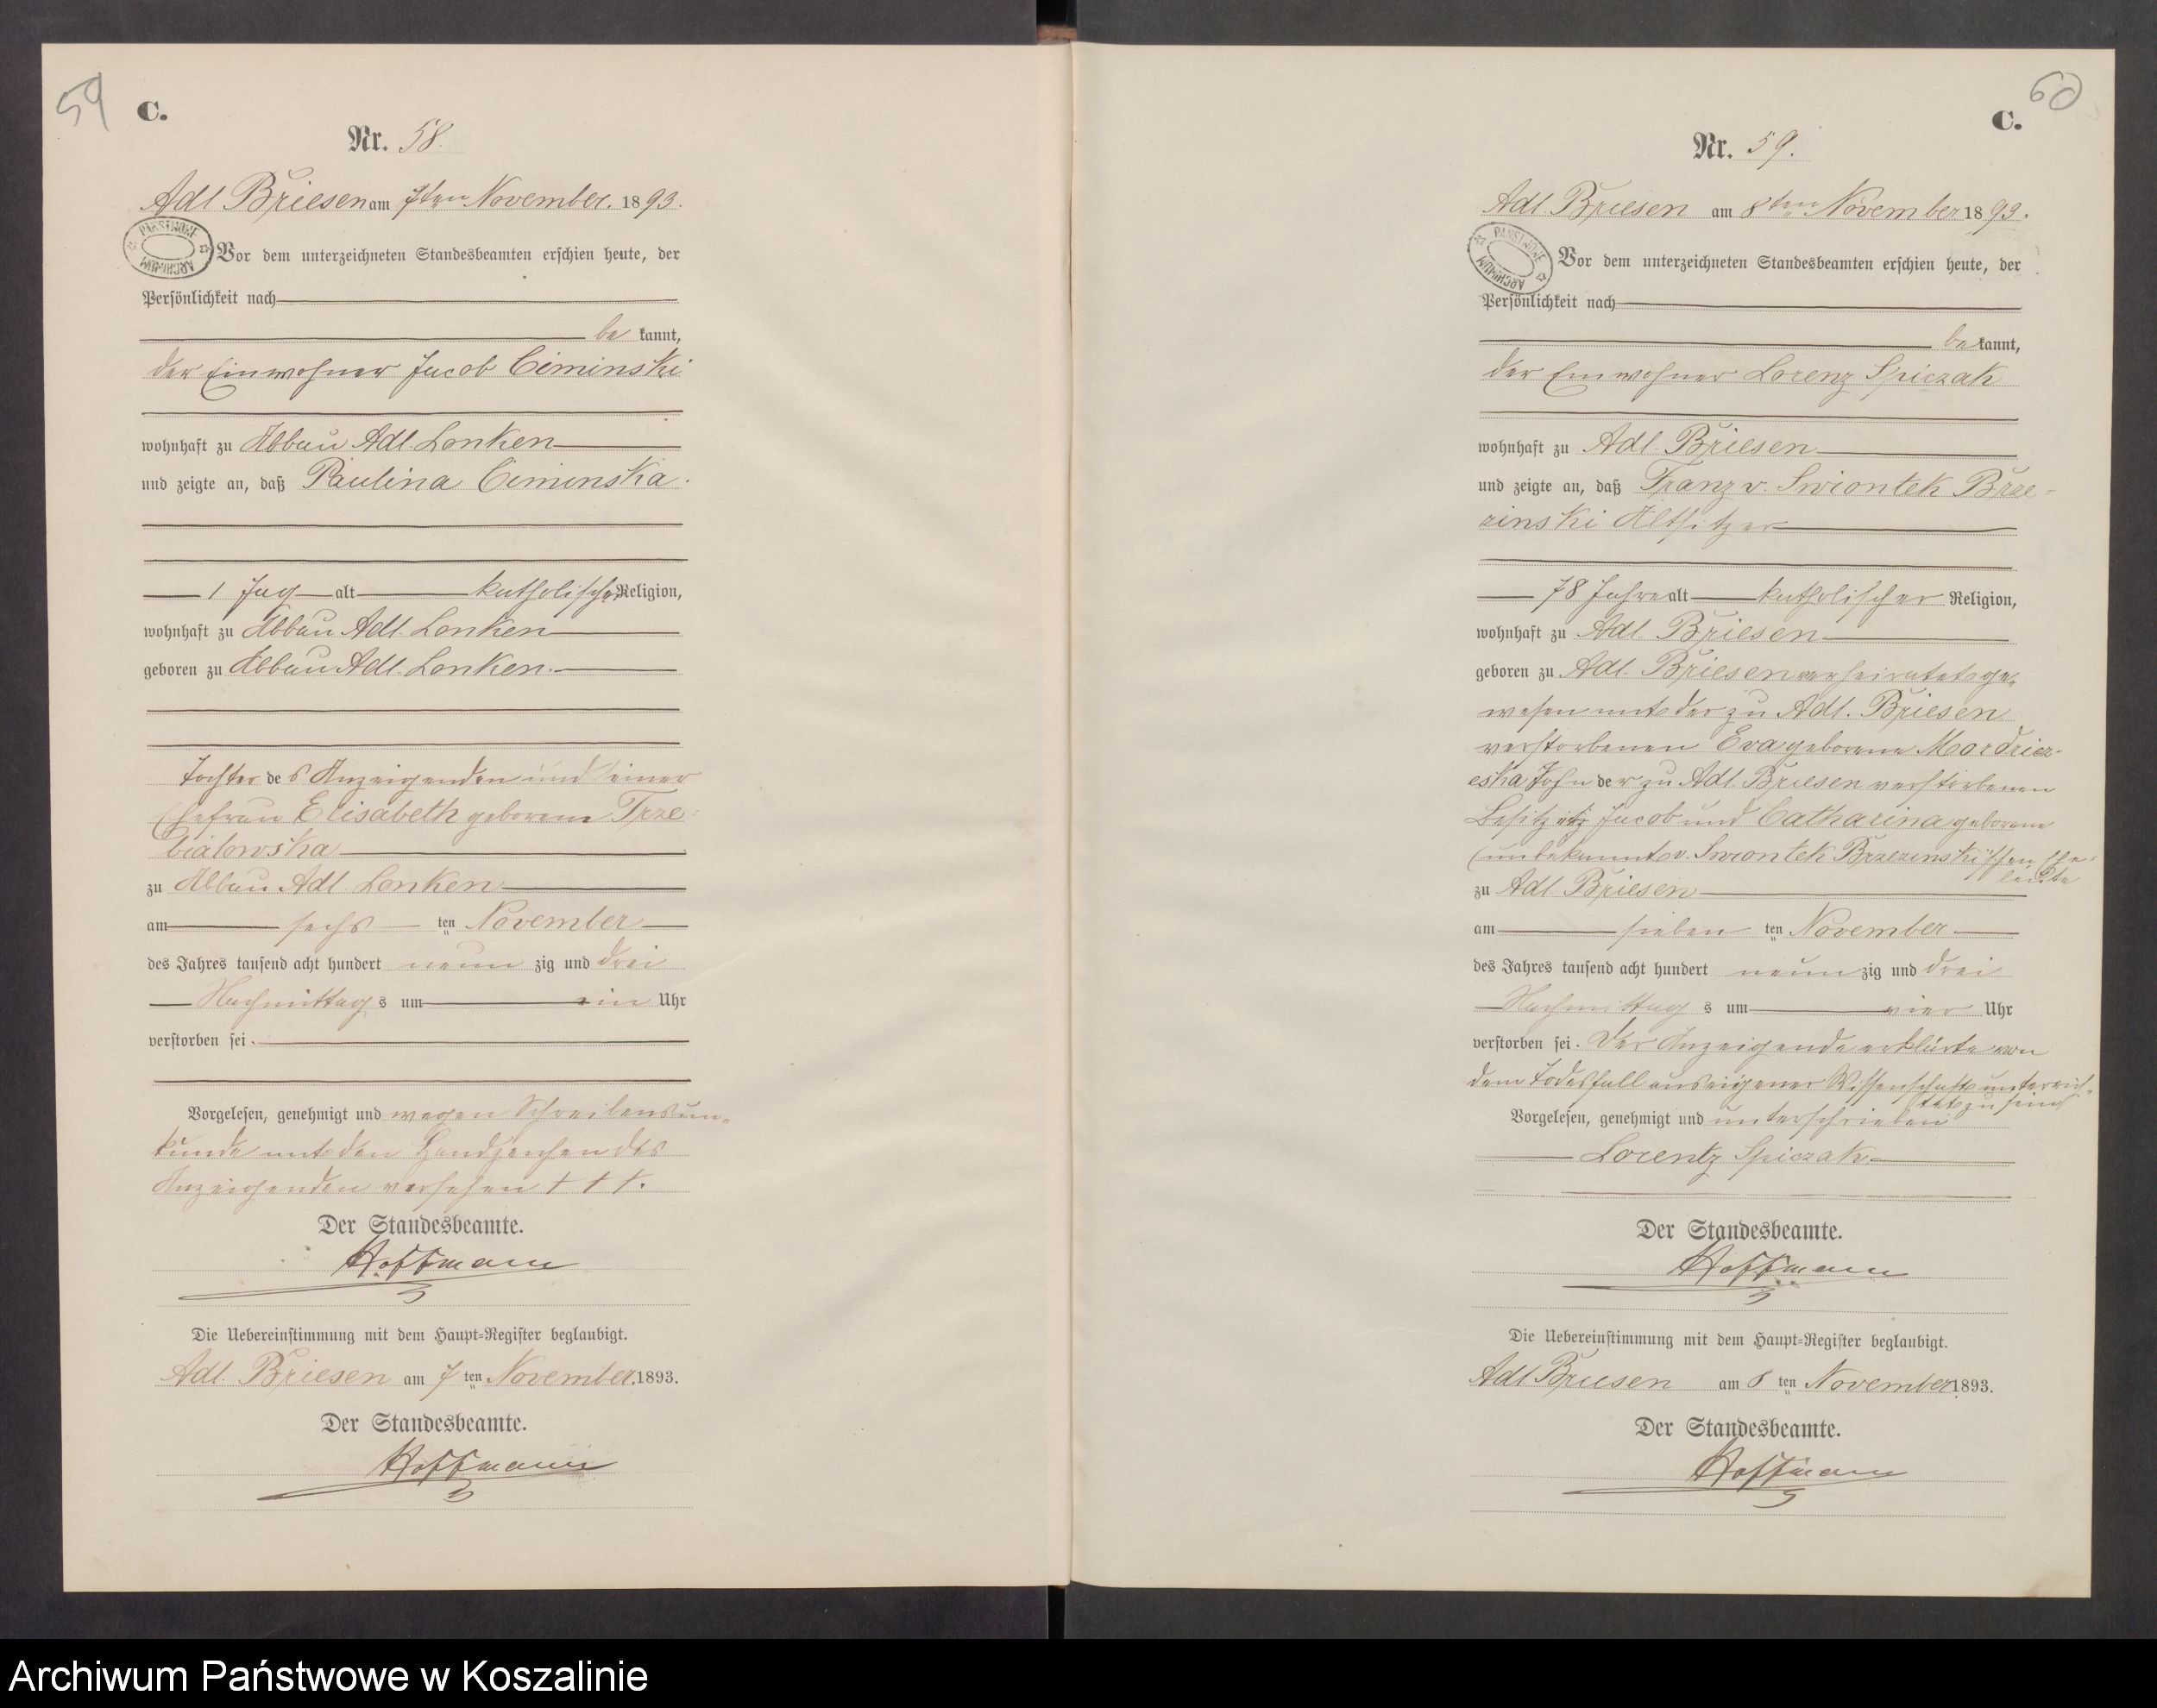 59
C.
Nr. 58.
Adl Briesen am 7ten November. 1893.
PAŃSTWOWE ARCHIWUM
Vor dem unterzeichneten Standesbeamten erschien heute, der
Persönlichkeit nach
be kannt,
der Einwohner Jacob Ciminski
wohnhaft zu Abbau Adl. Lonken
und zeigte an, daß Paulina Ciminska.
1 Tag alt katholischer Religion,
wohnhaft zu Abbau Adl. Lonken
geboren zu Abbau Adl. Lonken.
Tochter des Anzeigenden und seiner
Ehefrau Elisabeth geborene Trze-
biatowska
zu Abbau Adl Lonken
am sechs ten November
des Jahres tausend acht hundert neun zig und drei
Nachmittag s um ein Uhr
verstorben sei.
Vorgelesen, genehmigt und wegen Schreibensun-
kunde mit den Handzeichen des
Anzeigenden versehen † † †.
Der Standesbeamte.
Hoffmann
Die Uebereinstimmung mit dem Haupt-Register beglaubigt.
Adl. Briesen am 7 ten November 1893.
Der Standesbeamte.
Hoffmann
60
C.
Nr. 59.
Adl Briesen am 8ten November 1893.
PAŃSTWOWE ARCHIWUM
Vor dem unterzeichneten Standesbeamten erschien heute, der
Persönlichkeit nach
be kannt,
der Einwohner Lorenz Spiczak
wohnhaft zu Adl Briesen
und zeigte an, daß Franz v. Swiontek Brze-
zinski Altsitzer
78 Jahre alt katholischer Religion,
wohnhaft zu Adl. Briesen
geboren zu Adl. Briesen verheiratet ge-
wesen mit der zu Adl. Briesen
verstorbenen Eva geborene
Sohn der zu Adl. Briesen verstorbenen
Besitzer Jacob und Catharina geborene
(unbekannt v. Swiontek Brzezinski'schen Ehe-
leute
zu Adl Briesen
am sieben ten November
des Jahres tausend acht hundert neun zig und drei
Nachmittag s um vier Uhr
verstorben sei. Der Anzeigende erklärte von
dem Todesfall aus eigener Wissenschaft unterrich-
tet zu sein
Vorgelesen, genehmigt und unterschrieben
Lorentz Spiczak
Der Standesbeamte.
Hoffmann
Die Uebereinstimmung mit dem Haupt-Register beglaubigt.
Adl Briesen am 8 ten November 1893.
Der Standesbeamte.
Hoffmann
Archiwum Państwowe w Koszalinie